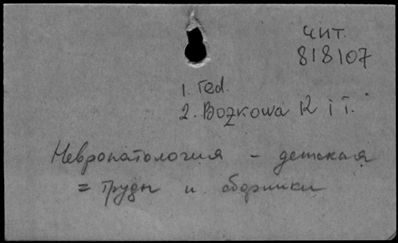 чит.
818107
1. red.
2. Bozkowa K i T.
Невропатология - детская
= труды и сборники